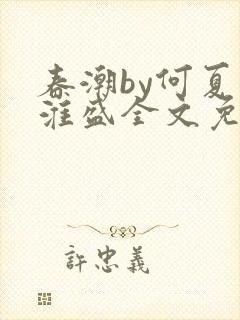 春潮by何夏
淮盛全文免
許忠義